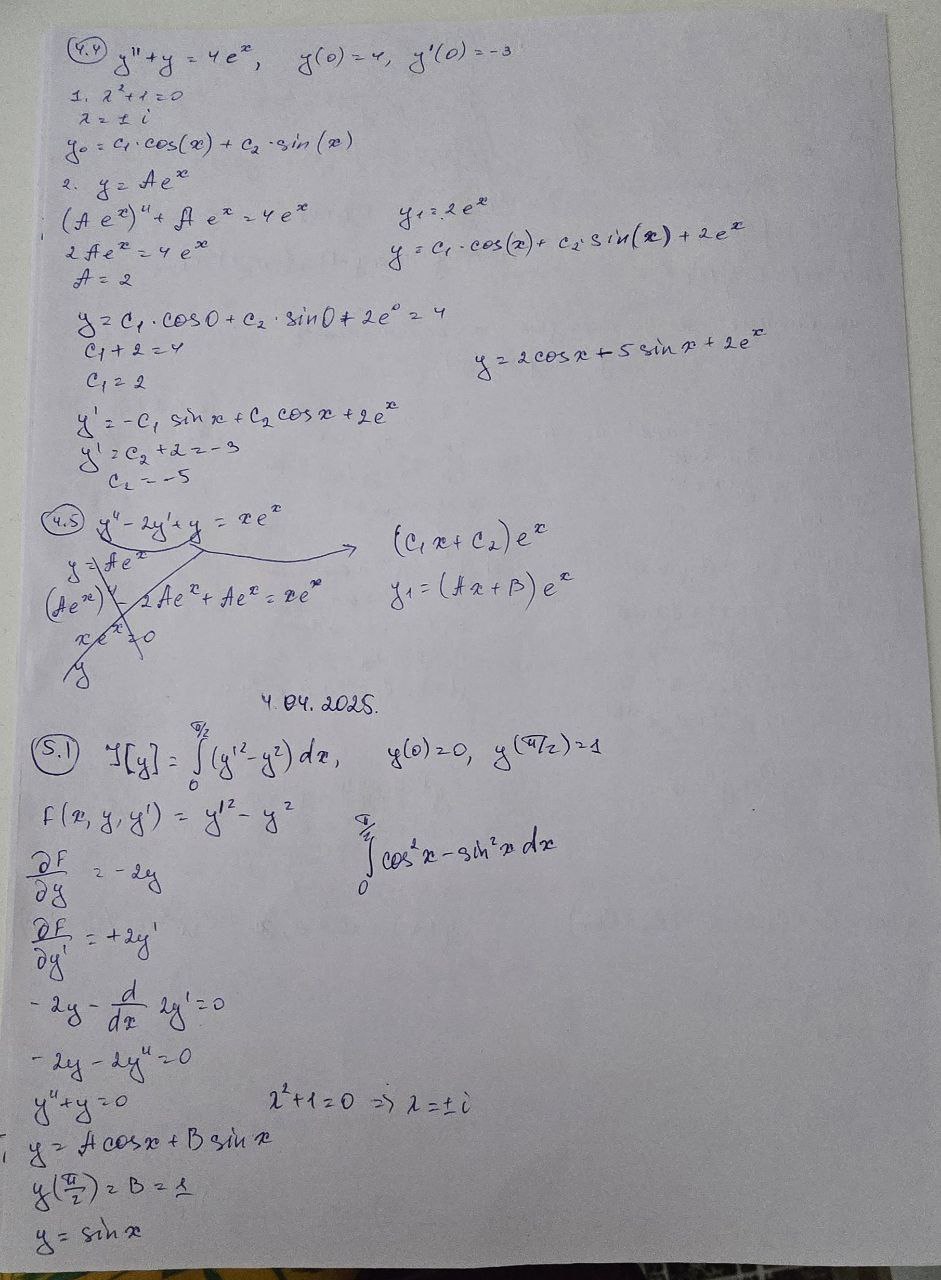 4.4 y'' + y = 4e^x, y(0) = 4, y'(0) = -3
1. λ² + 1 = 0
λ = ± i
y₀ = C₁·cos(x) + C₂·sin(x)
2. y = Ae^x
(Ae^x)'' + Ae^x = 4e^x
2Ae^x = 4e^x
A = 2
y₁ = 2e^x
y = C₁·cos(x) + C₂·sin(x) + 2e^x
y = C₁·cos0 + C₂·sin0 + 2e⁰ = 4
C₁ + 2 = 4
C₁ = 2
y' = -C₁ sin x + C₂ cos x + 2e^x
y' = C₂ + 2 = -3
C₂ = -5
y = 2cos x + 5 sin x + 2e^x
4.5 y'' - 2y' + y = xe^x
y = Ae^x
(Ae^x)'' - 2Ae^x + Ae^x = xe^x
xe^x = 0
y
(C₁x + C₂)e^x
y₁ = (Ax + B)e^x
4.04.2025.
5.1 J[y] = ∫₀^{π/2} (y'² - y²) dx, y(0) = 0, y(π/2) = 1
F(x, y, y') = y'² - y²
∂F/∂y = -2y
∂F/∂y' = +2y'
∫₀^{π/2} cos²x - sin²x dx
-2y - d/dx 2y' = 0
-2y - 2y'' = 0
y'' + y = 0 λ² + 1 = 0 => λ = ± i
y = A cos x + B sin x
y(π/2) = B = 1
y = sin x